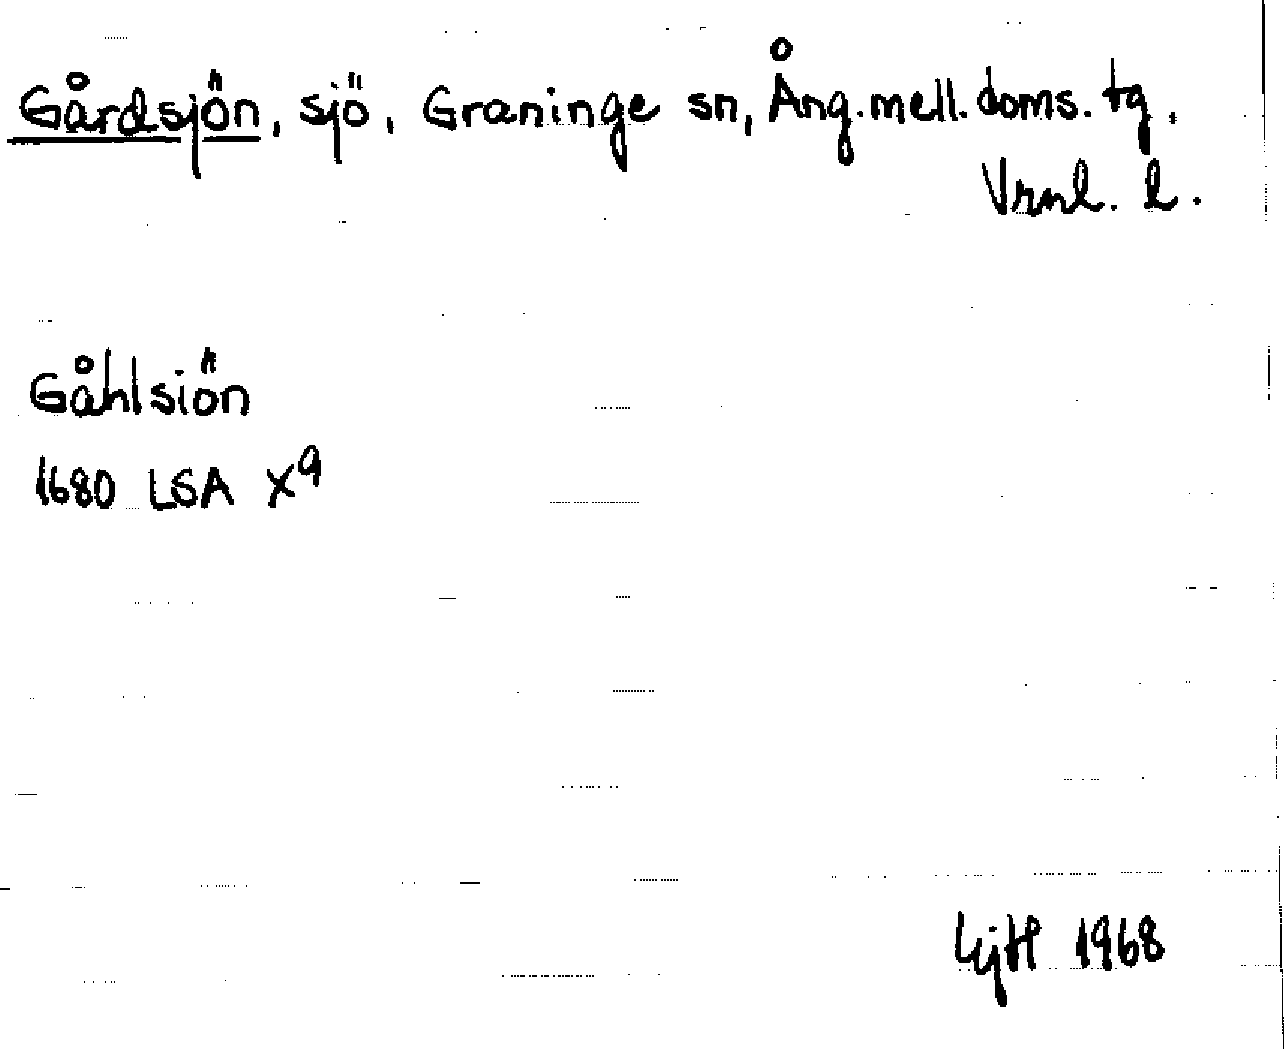 Gårdsjön, sjö, Graninge sn, Ång.mell.doms.tg.
Vrnl. l.
Gåhlsiön
1680 LSA X9
1968